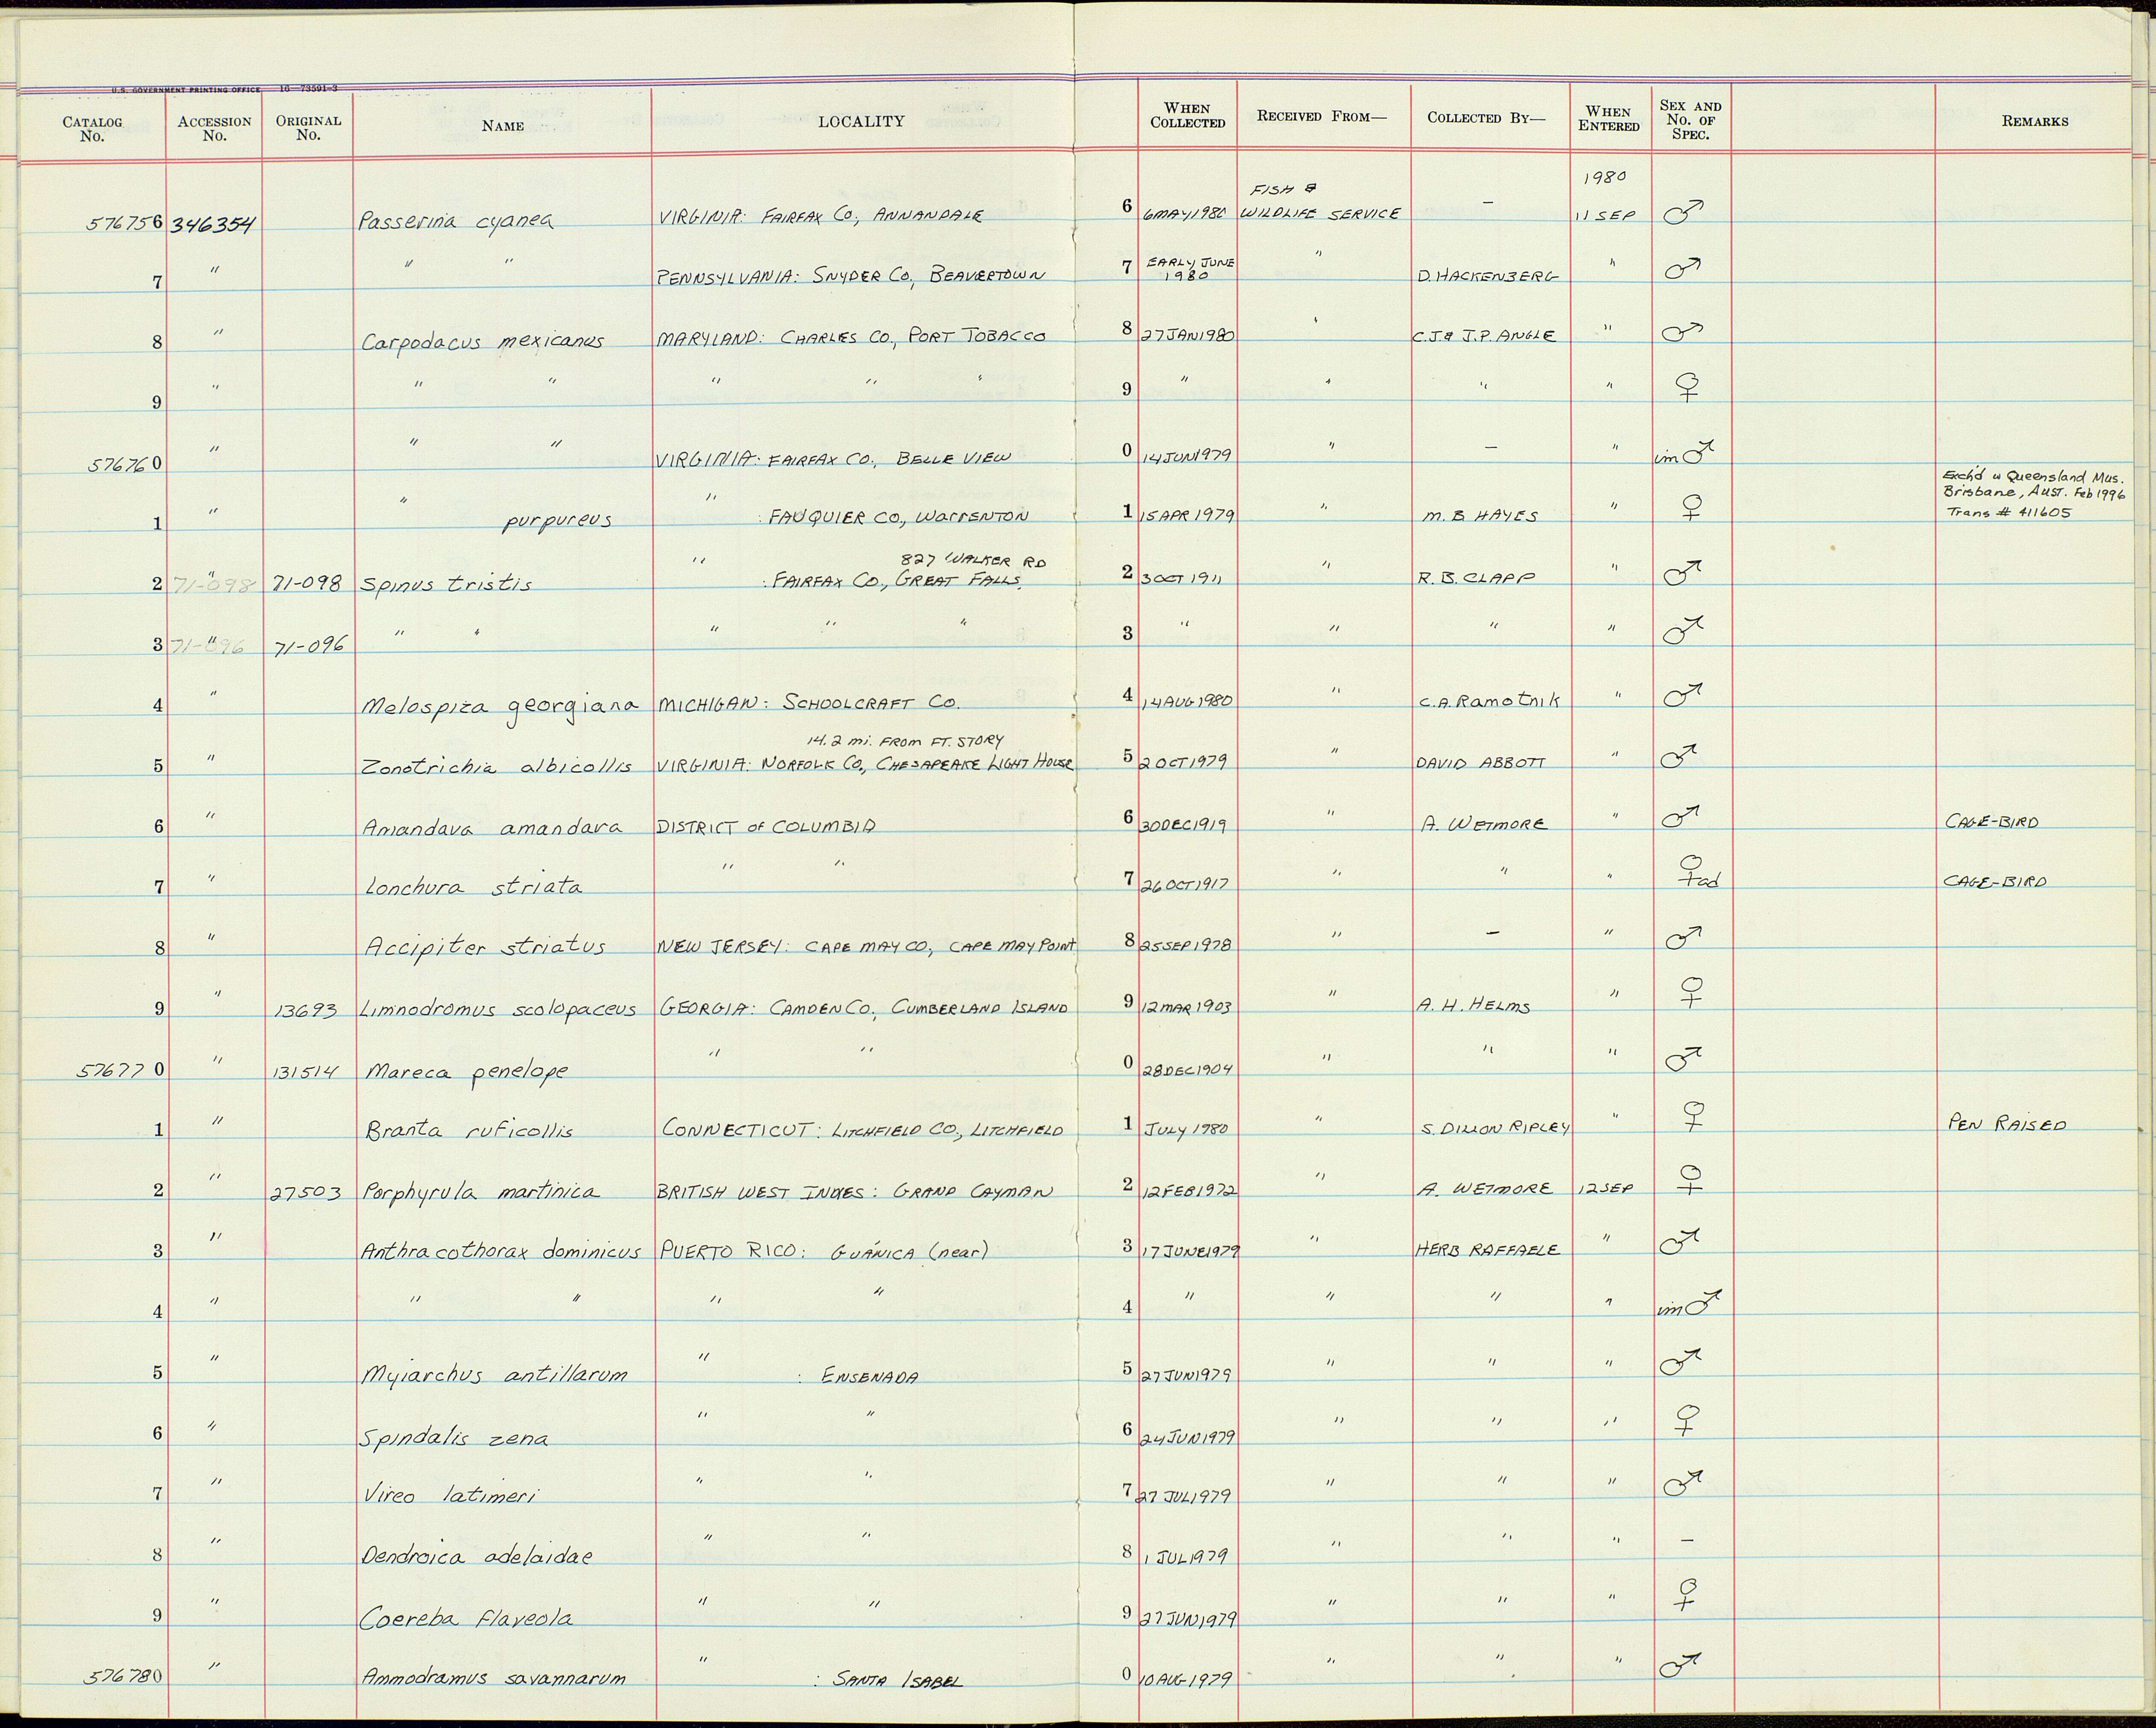 U.S. GOVERNMENT PRINTING OFFICE 16—73591-3
CATALOG No. ACCESSION No. ORIGINAL No. NAME LOCALITY WHEN COLLECTED RECEIVED FROM— COLLECTED BY— WHEN ENTERED SEX AND No. OF SPEC. REMARKS
FISH & 1980
576756 346354 Passerina cyanea VIRGINIA: FAIRFAX CO, ANNANDALE 6 6MAY1980 WILDLIFE SERVICE — 11 SEP ♂
7 " " " PENNSYLVANIA: SNYDER CO, BEAVERTOWN 7 EARLY JUNE 1980 " D. HACKENBERG " ♂
8 " Carpodacus mexicanus MARYLAND: CHARLES CO, PORT TOBACCO 8 27JAN1980 " C.J. & J.P. ANGLE " ♂
9 " " " " " " 9 " " " " ♀
576760 " " " VIRGINIA: FAIRFAX CO., BELLE VIEW 0 14JUN1979 " — " im ♂
Exch'd w Queensland Mus.
Brisbane, AUST. Feb 1996
1 " " purpureus " : FAUQUIER CO., WARRENTON 1 15APR1979 " M. B HAYES " ♀ Trans # 411605
827 WALKER RD
2 71-098 " 71-098 Spinus tristis " : FAIRFAX CO., GREAT FALLS. 2 3OCT1911 " R. B. CLAPP " ♂
3 71-096 " 71-096 " " " " " 3 " " " " ♂
4 " Melospiza georgiana MICHIGAN: SCHOOLCRAFT CO. 4 14AUG1980 " C.A. Ramotnik " ♂
14.2 mi. FROM FT. STORY
5 " Zonotrichia albicollis VIRGINIA: NORFOLK CO, CHESAPEAKE LIGHT HOUSE 5 2OCT1979 " DAVID ABBOTT " ♂
6 " Amandava amandava DISTRICT OF COLUMBIA 6 30DEC1919 " A. WETMORE " ♂ CAGE-BIRD
7 " Lonchura striata " " 7 26OCT1917 " " " ♀ ad CAGE-BIRD
8 " Accipiter striatus NEW JERSEY: CAPE MAY CO, CAPE MAY POINT 8 25SEP1978 " — " ♂
9 " 13693 Limnodromus scolopaceus GEORGIA: CAMDEN CO., CUMBERLAND ISLAND 9 12MAR1903 " A. H. HELMS " ♀
576770 " 131514 Mareca penelope " " 0 28DEC1904 " " " ♂
1 " Branta ruficollis CONNECTICUT: LITCHFIELD CO., LITCHFIELD 1 JULY 1980 " S. DILLON RIPLEY " ♀ PEN RAISED
2 " 27503 Porphyrula martinica BRITISH WEST INDIES: GRAND CAYMAN 2 12FEB1972 " A. WETMORE 12SEP ♀
3 " Anthracothorax dominicus PUERTO RICO: GUÁNICA (near) 3 17JUNE1979 " HERB RAFFAELE " ♂
4 " " " " " 4 " " " " im ♂
5 " Myiarchus antillarum " : ENSENADA 5 27JUN1979 " " " ♂
6 " Spindalis zena " " 6 24JUN1979 " " " ♀
7 " Vireo latimeri " " 7 27JUL1979 " " " ♂
8 " Dendroica adelaidae " " 8 1 JUL1979 " " " —
9 " Coereba flaveola " " 9 27JUN1979 " " " ♀
576780 " Ammodramus savannarum " : SANTA ISABEL 0 10AUG1979 " " " ♂